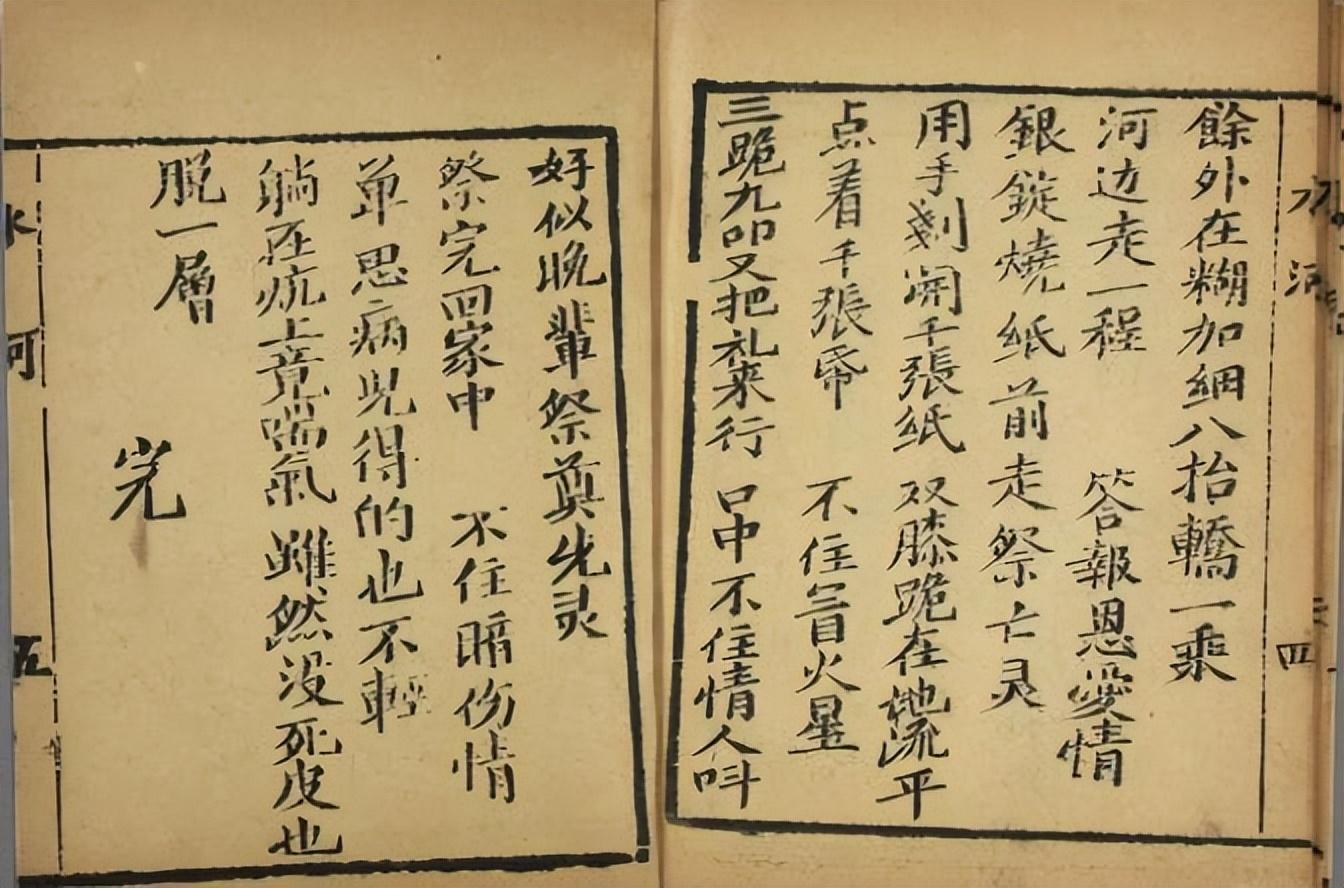 餘外在糊加綢八抬轎一乘
河边走一程 答報恩愛情
銀錠燒纸前走祭亡灵
用手剗開千張纸 双膝跪在地流平
点着千張帋 不住冒火星
三跪九叩又把礼来行 口中不住情人呌
四
好似晚輩祭奠先灵
祭完回家中 不住暗伤情
单思病児得的也不輕
躺在炕上竟喘氣 雖然没死皮也
脱一層
完
水 河
五